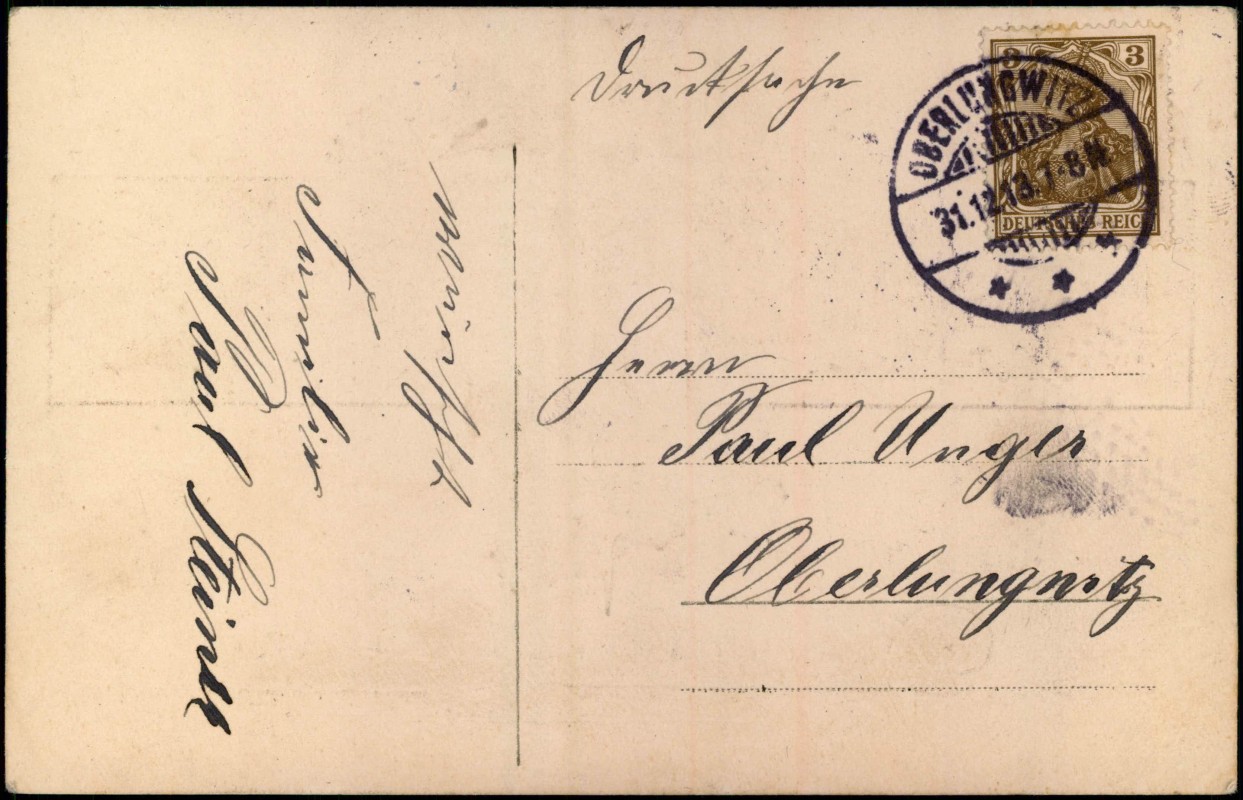 Drucksache
3 3
OBERLUNGWITZ
31.12.13.7-8N.
DEUTSCHES REICH
Herrn
Paul Unger
Oberlungwitz
wünscht
Familie
Paul